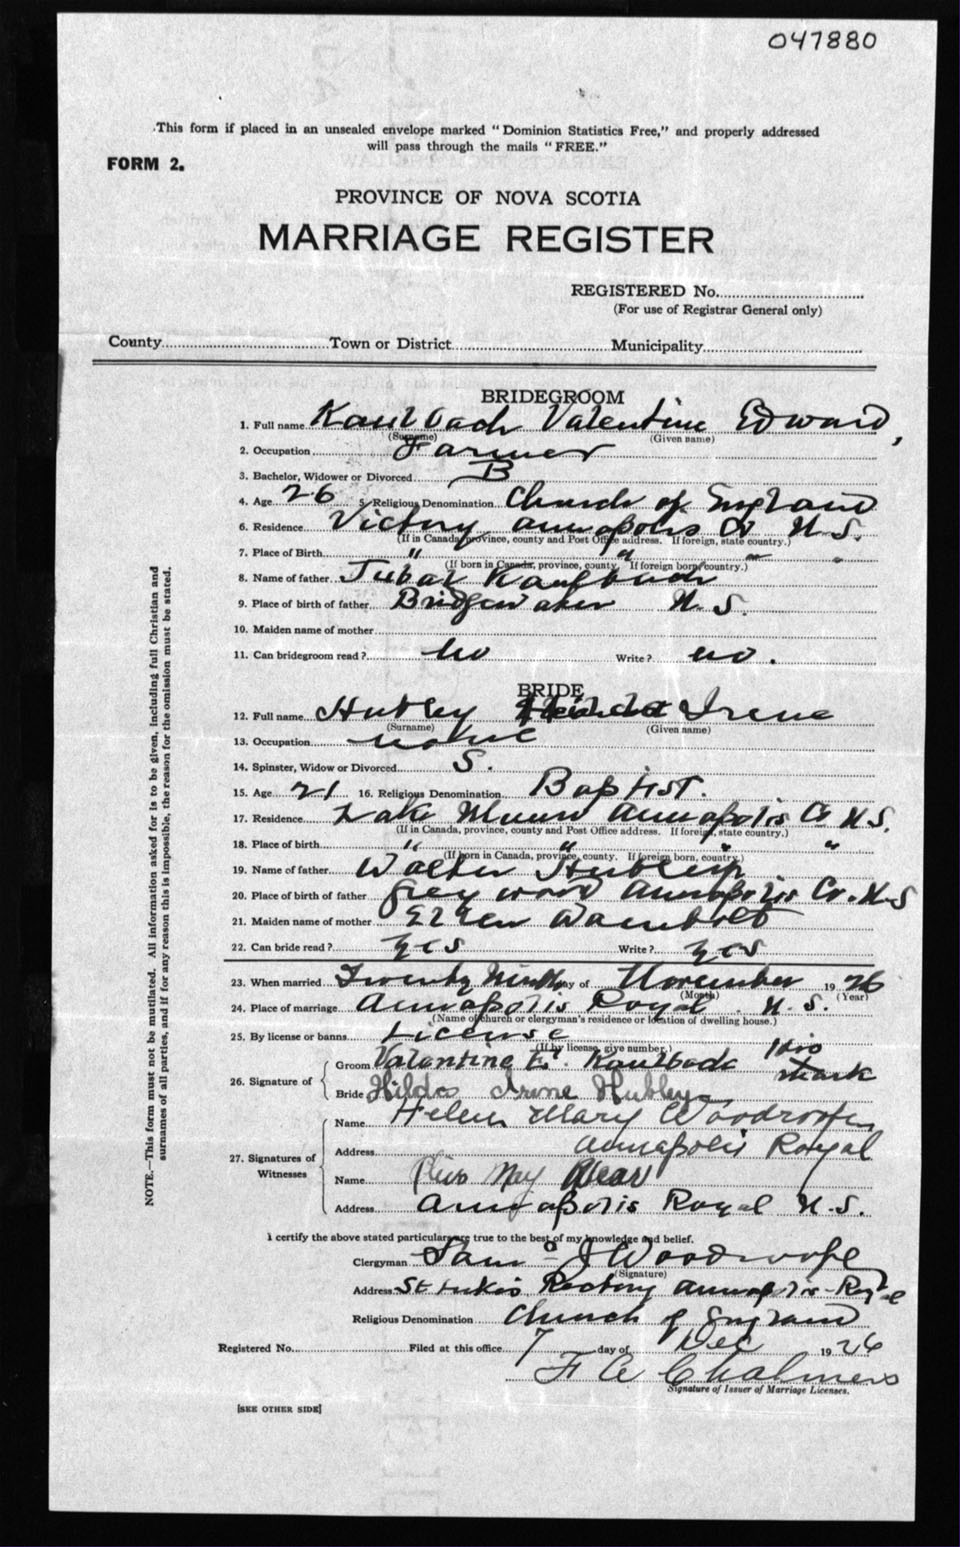 047880
This form if placed in an unsealed envelope marked "Dominion Statistics Free," and properly addressed
will pass through the mails "FREE."
FORM 2.
PROVINCE OF NOVA SCOTIA
MARRIAGE REGISTER
REGISTERED No.
(For use of Registrar General only)
County Town or District Municipality
BRIDEGROOM
1. Full name Kaulbach Valentine Edward,
(Surname) (Given name)
2. Occupation Farmer
3. Bachelor, Widower or Divorced B
4. Age 26 5. Religious Denomination Church of England
6. Residence Victory Annapolis Co N.S.
(If in Canada, province, county and Post Office address. If foreign, state country.)
7. Place of Birth " " "
(If born in Canada, province, county. If foreign born, country.)
8. Name of father Kaulbach
9. Place of birth of father Bridgewater N.S.
10. Maiden name of mother
11. Can bridegroom read? no Write? no.
BRIDE
12. Full name Hubley Irene
(Surname) (Given name)
13. Occupation
14. Spinster, Widow or Divorced S.
15. Age 21 16. Religious Denomination Baptist.
17. Residence Lake Munro Annapolis Co N.S.
(If in Canada, province, county and Post Office address. If foreign, state country.)
18. Place of birth " " " "
(If born in Canada, province, county. If foreign born, country.)
19. Name of father Walter Hubley
20. Place of birth of father Greywood Annapolis Co. N.S
21. Maiden name of mother Ellen
22. Can bride read? yes Write? yes
23. When married Twenty Ninth day of November 1926
(Month) (Year)
24. Place of marriage Annapolis Royal N.S.
(Name of church or clergyman's residence or location of dwelling house.)
25. By license or banns License
(If by license, give number.)
26. Signature of Groom Valantine E. Kaulback his
mark
Bride Hilda Irene Hubley
27. Signatures of Witnesses
Name Helen Mary Woodroofe
Address Annapolis Royal
Name May
Address Annapolis Royal N.S.
I certify the above stated particulars are true to the best of my knowledge and belief.
Clergyman Sam J Woodroofe
(Signature)
Address St Lukes Rectory Annapolis Royal
Religious Denomination Church of England
Registered No. Filed at this office 7 day of Dec 1926
F A Chalmers
Signature of Issuer of Marriage Licenses.
[SEE OTHER SIDE]
NOTE.—This form must not be mutilated. All information asked for is to be given, including full Christian and
surnames of all parties, and if for any reason this is impossible, the reason for the omission must be stated.